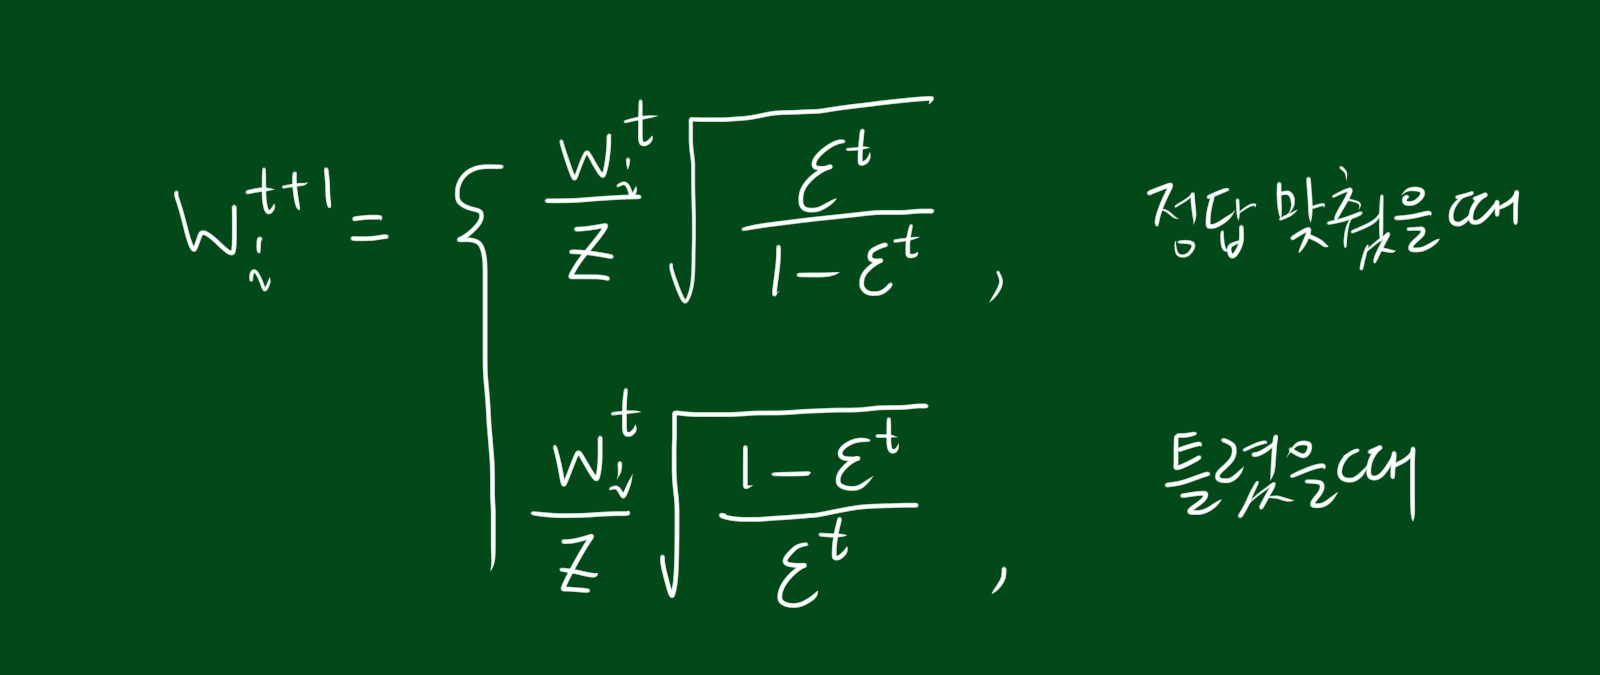 $w_i^{t+1} = \begin{cases} \frac{w_i^t}{z} \sqrt{\frac{\varepsilon^t}{1-\varepsilon^t}}, & \text{정답 맞췄을때} \\ \frac{w_i^t}{z} \sqrt{\frac{1-\varepsilon^t}{\varepsilon^t}}, & \text{틀렸을때} \end{cases}$